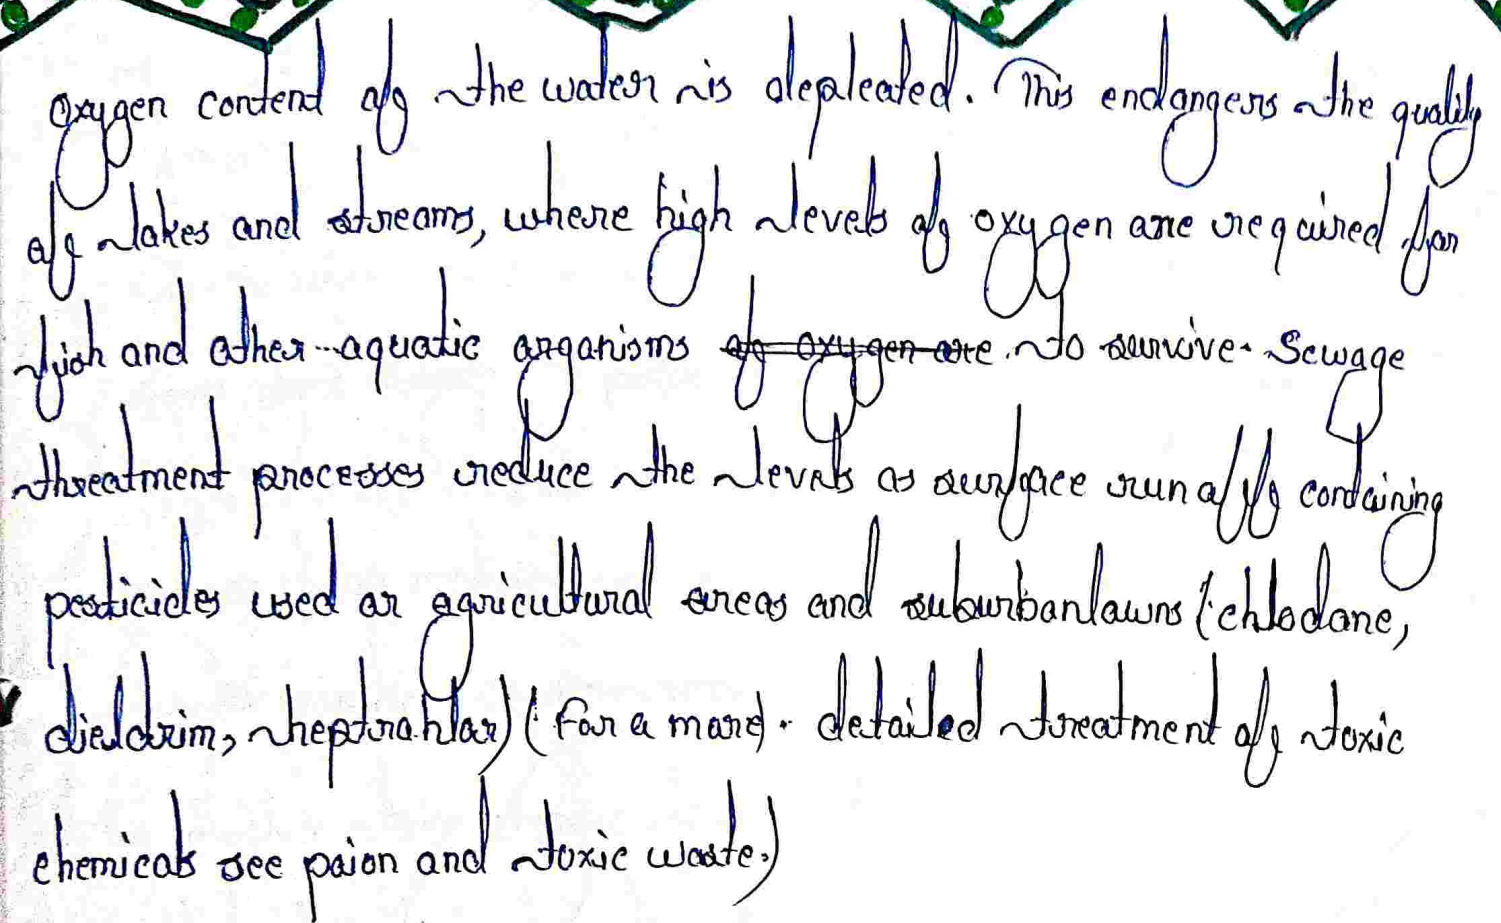 oxygen content of the water is depleated. This endangers the quality
of lakes and streams, where high levels of oxygen are required for
fish and other aquatic organisms of oxygen are to survive. Sewage
threatment processes reduce the levels as surface runoff containing
pesticides used on agricultural areas and suburbanlawns (chlodane,
dieldrim, heptrahlar) (for a mare). detailed treatment of toxic
chemicals see paion and toxic waste.)